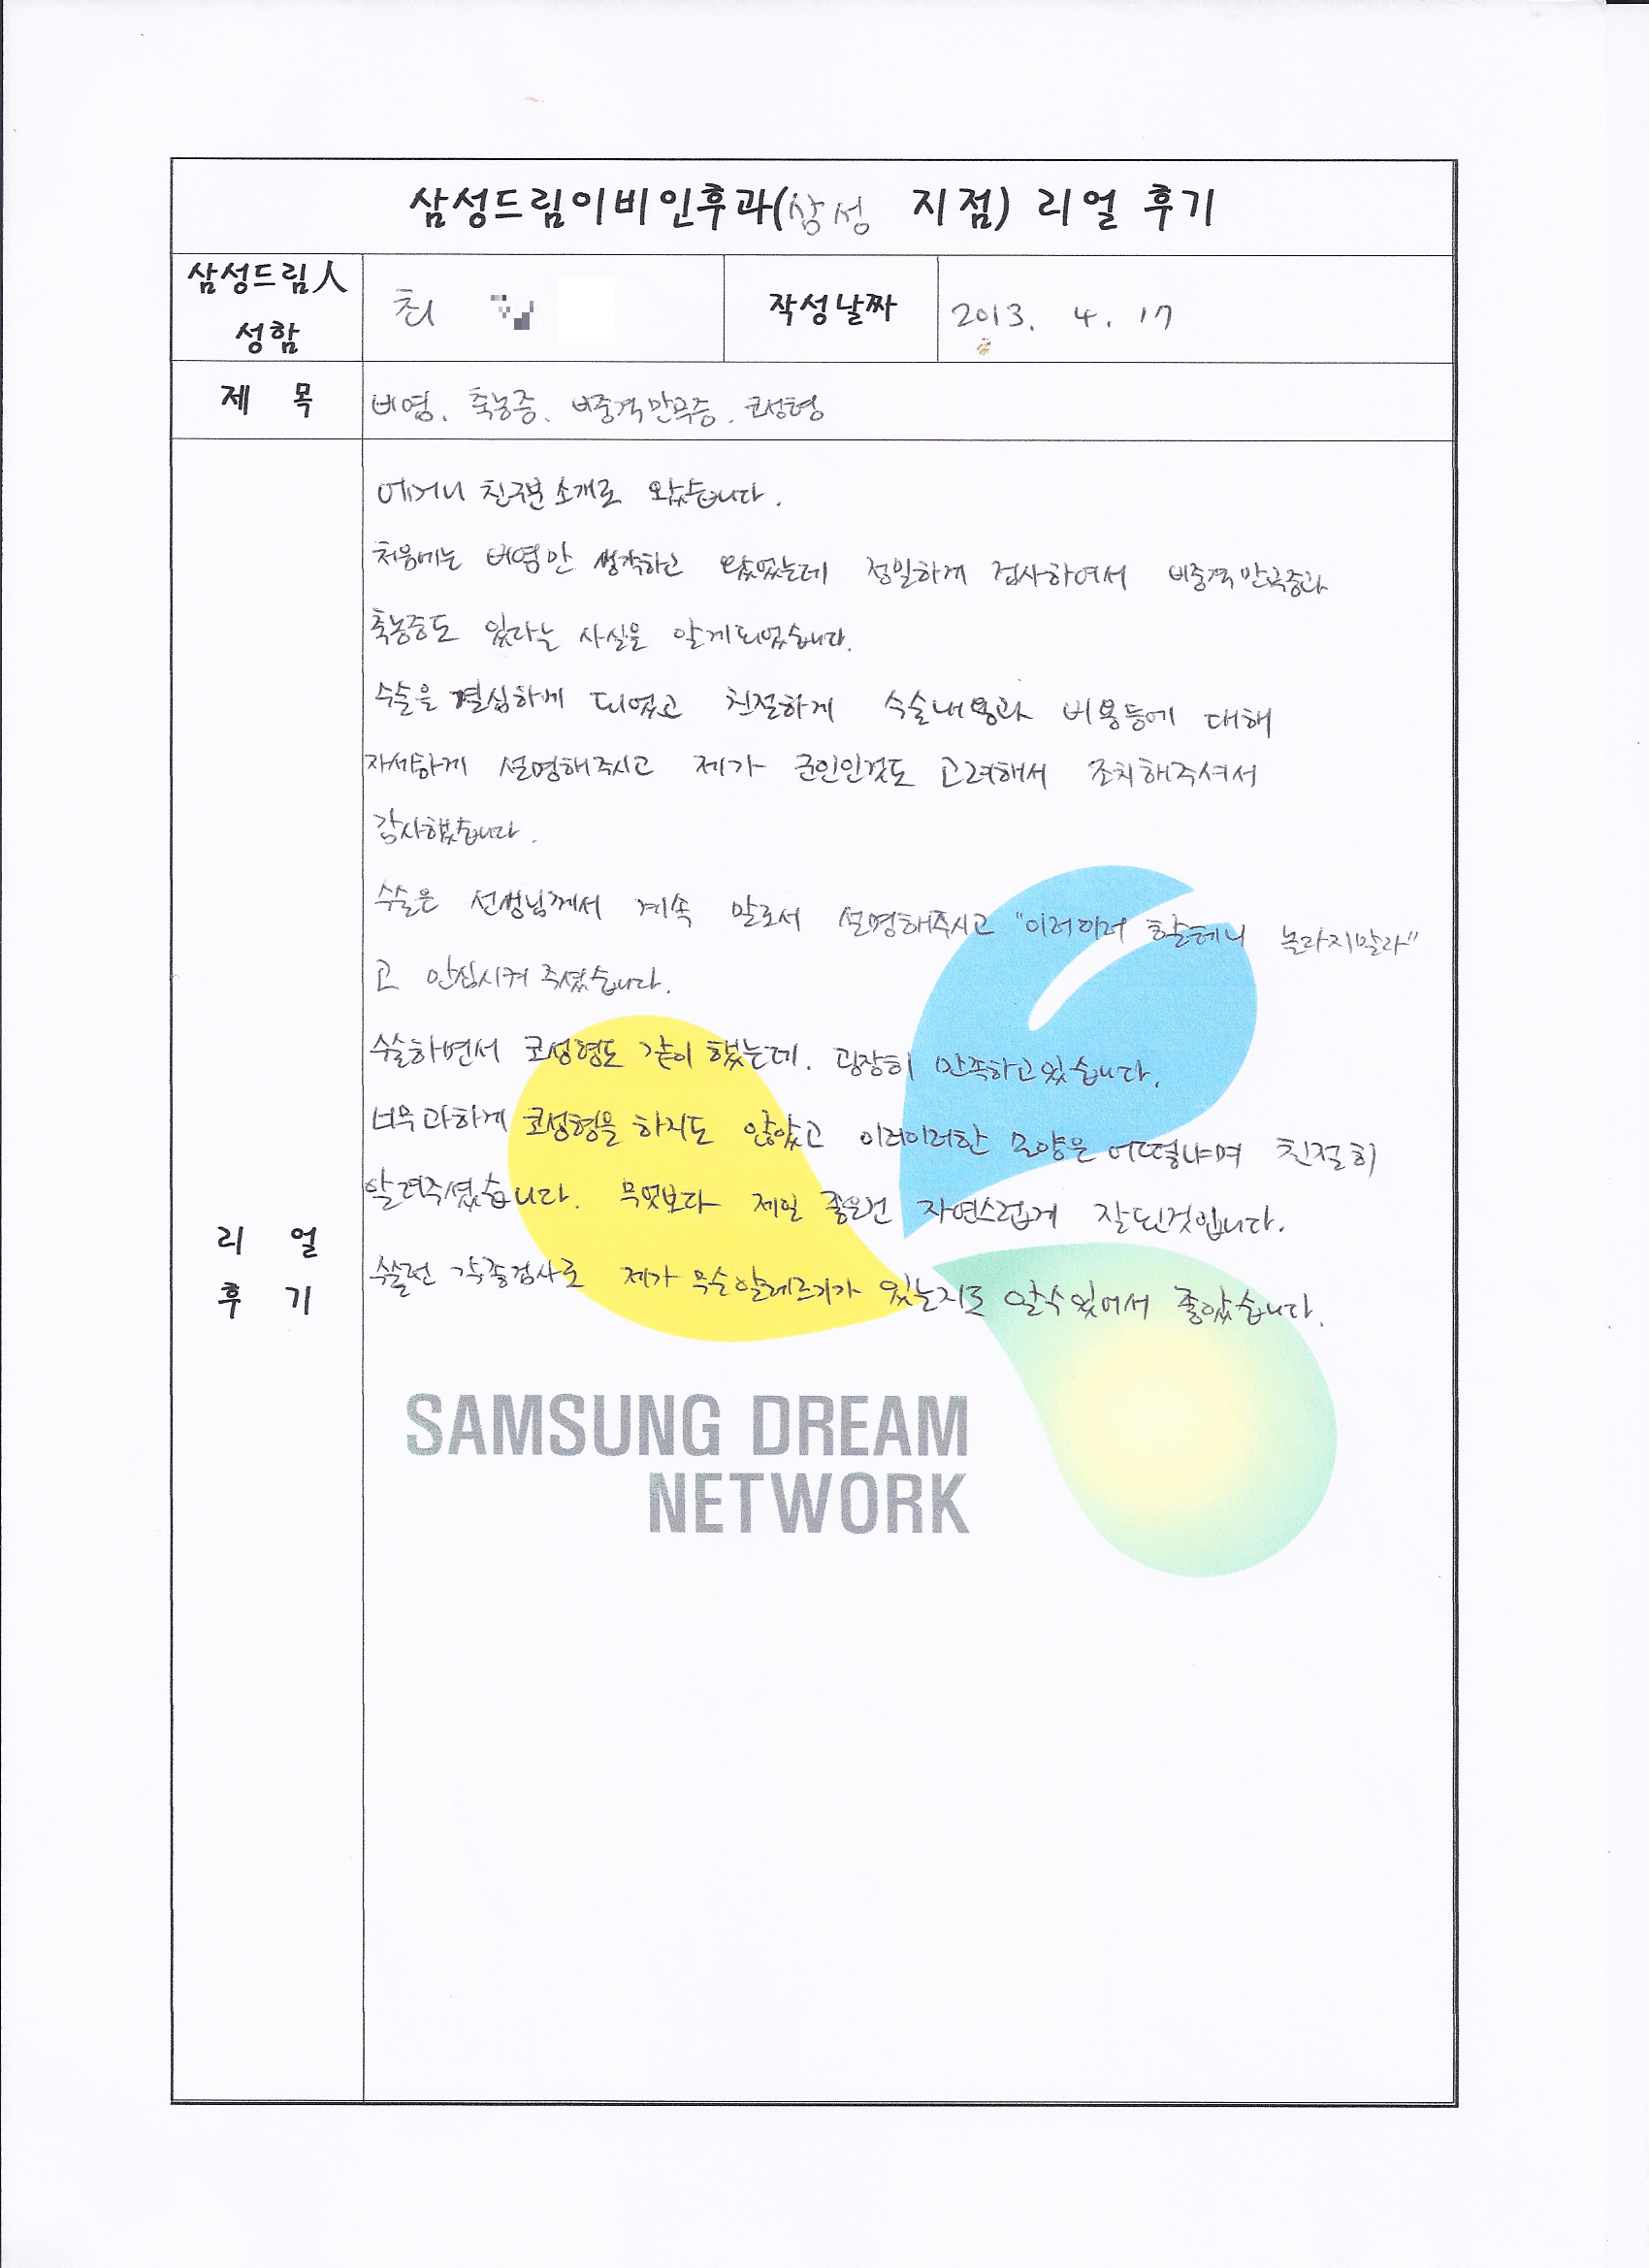 삼성드림이비인후과(삼성 지점) 리얼 후기
삼성드림人
성함
최
작성날짜
2013. 4. 17
제 목
비염. 축농증. 비중격만곡증. 코성형
어머니 친구분 소개로 왔습니다.
처음에는 비염만 생각하고 왔었는데 정밀하게 검사하여서 비중격만곡증과
축농증도 있다는 사실을 알게되었습니다.
수술을 결심하게 되었고 친절하게 수술내용과 비용등에 대해
자세하게 설명해주시고 제가 군인인것도 고려해서 조치해주셔서
감사했습니다.
수술은 선생님께서 계속 말로서 설명해주시고 "이러이러 할테니 놀라지말라"
고 안심시켜 주셨습니다.
수술하면서 코성형도 같이 했는데. 굉장히 만족하고있습니다.
너무과하게 코성형을 하지도 않았고 이러이러한 모양은 어떻냐며 친절히
알려주셨습니다. 무엇보다 제일 좋은건 자연스럽게 잘된것입니다.
수술전 각종검사로 제가 무슨알레르기가 있는지도 알수있어서 좋았습니다.
리 얼
후 기
SAMSUNG DREAM
NETWORK